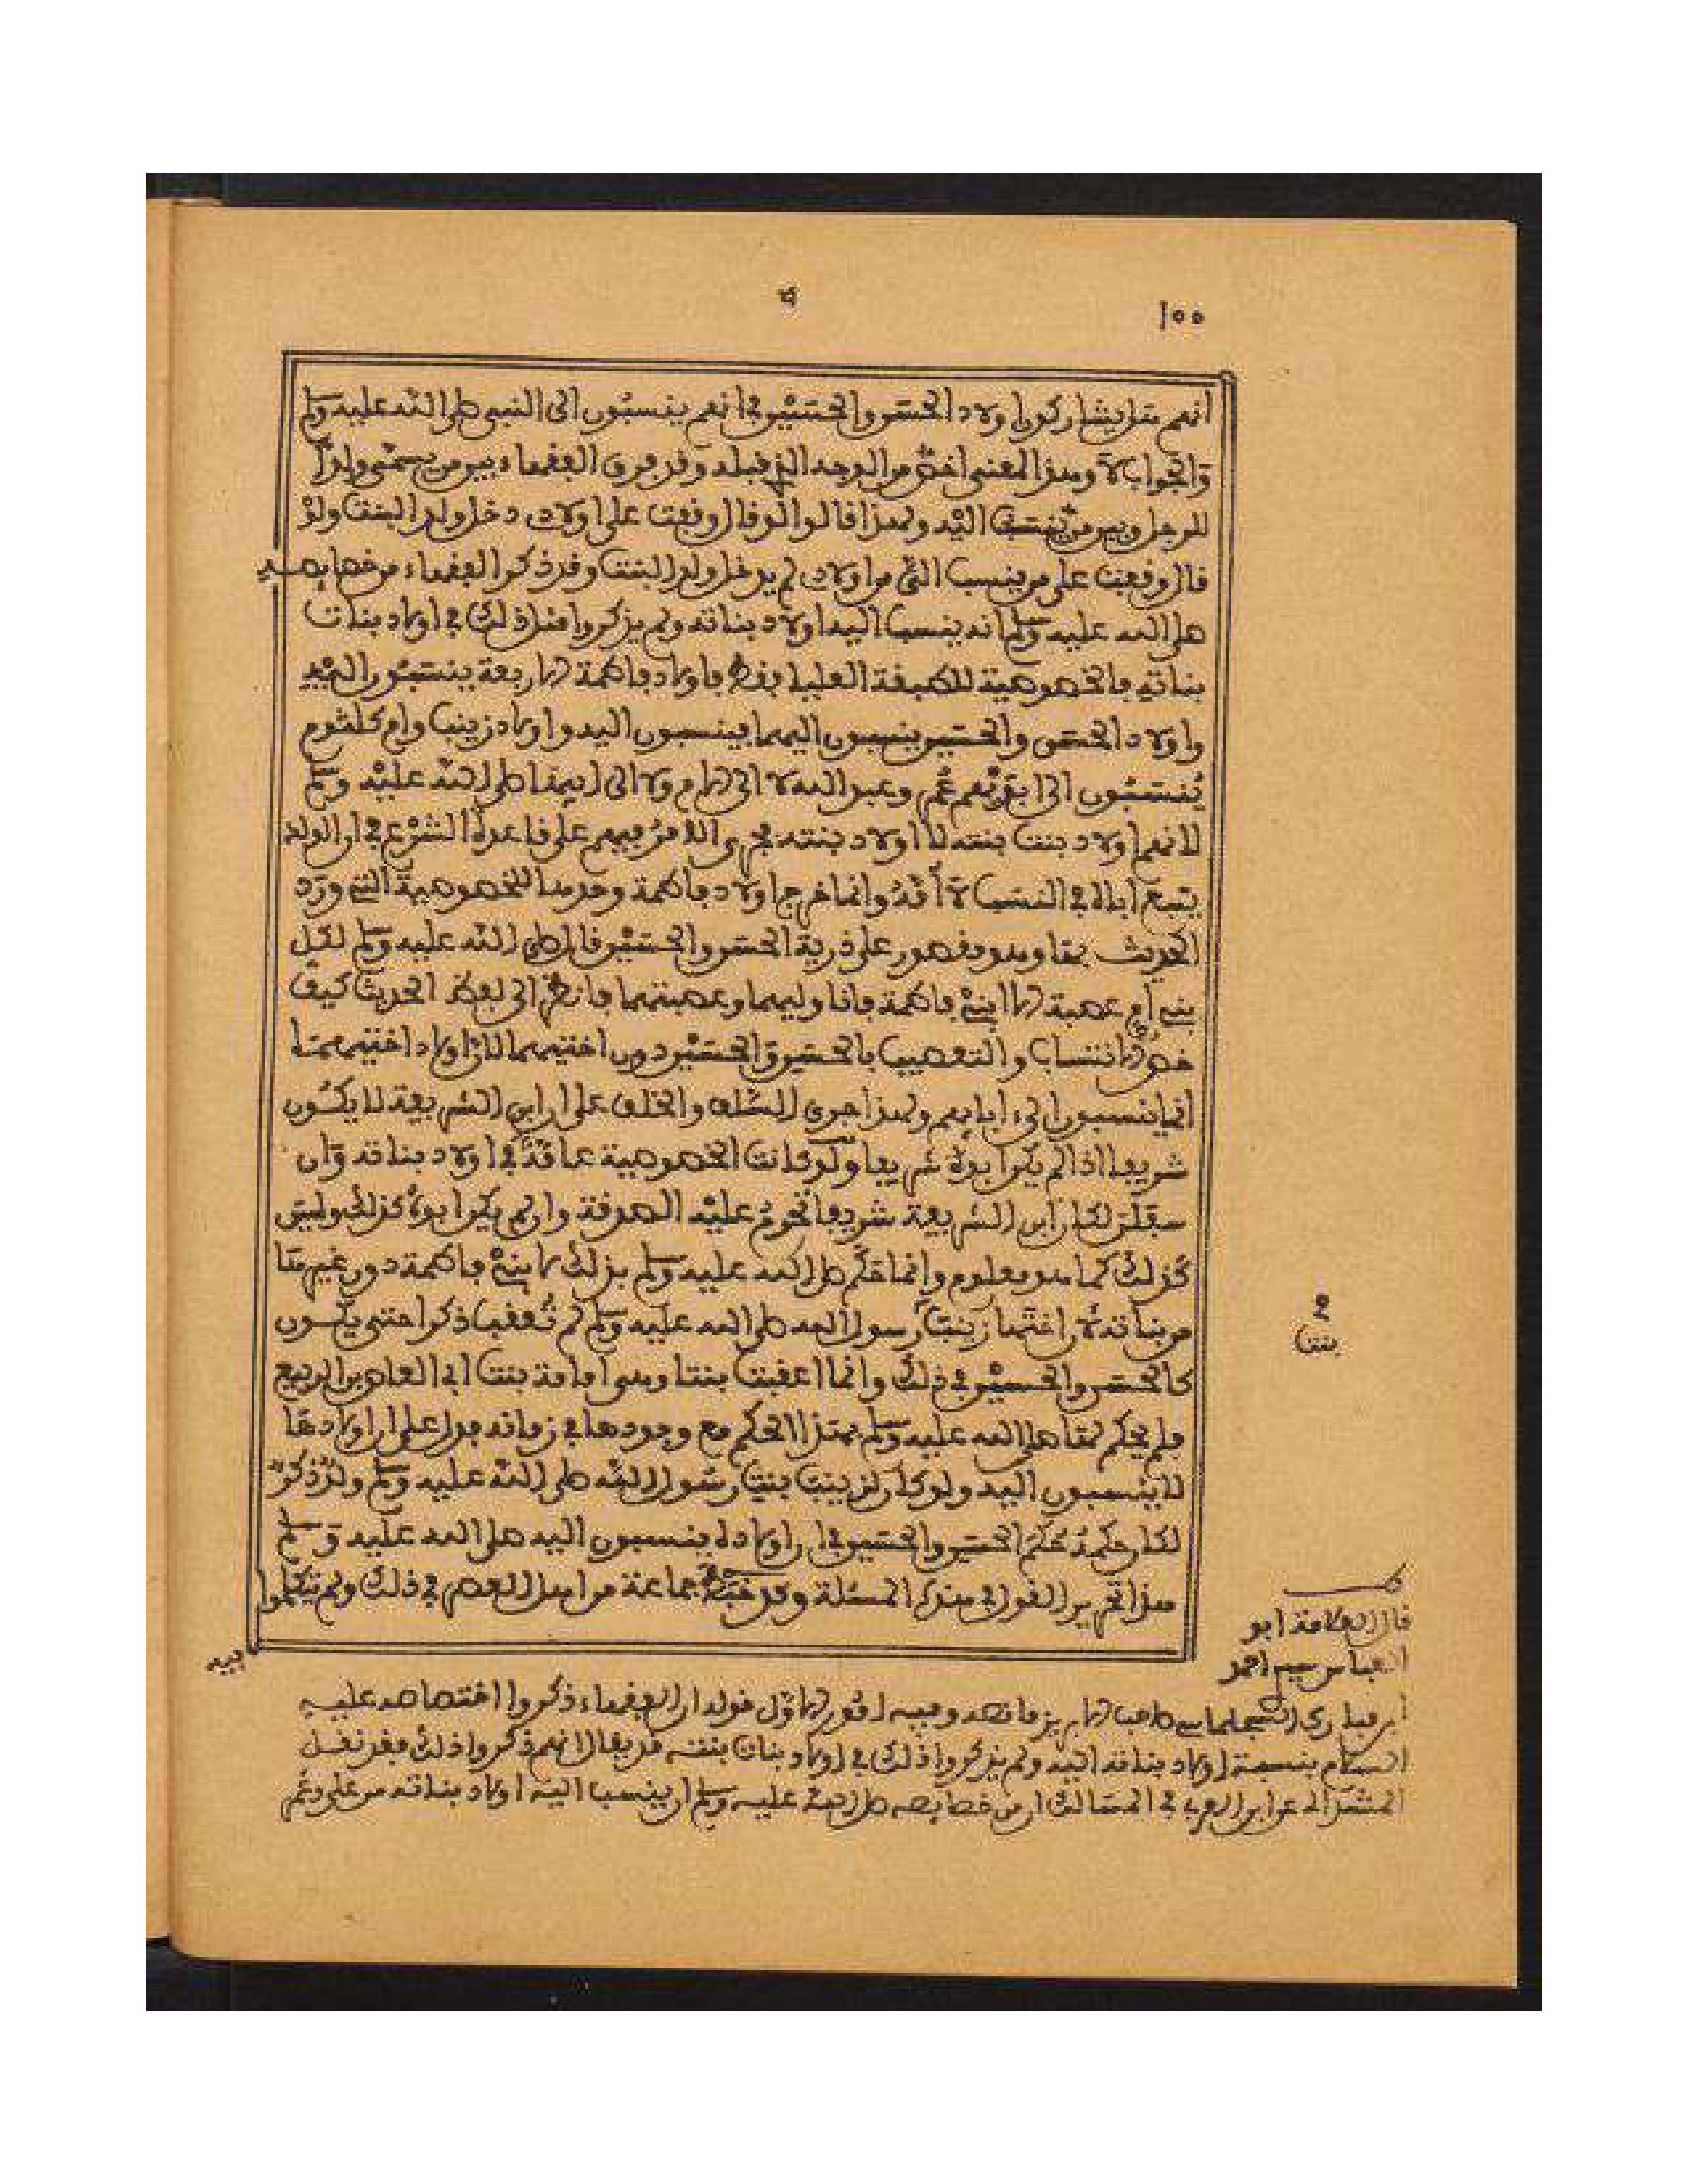 ١٠٠
انهم هل يشاركون اولاد الحسن والحسين في انهم ينسبون الى النبي صلى الله عليه وسلم
والجواب لا وهذا المعنى اخص من الوجه الذي قبله وقد فرق الفقهاء بين من يسمى ولدا
للرجل وبين من ينتسب اليه ولهذا قالوا لو قال وقفت على اولادي دخل ولد البنت ولو
قال وقفت على من ينسب الي من اولادي لم يدخل ولد البنت وقد ذكر الفقهاء من خصايصه
صلى الله عليه وسلم انه ينسب اليه اولاد بناته ولم يذكروا مثل ذلك في اولاد بنات
بناته فالخصوصية للطبقة العليا فقط فاولاد فاطمة الاربعة ينتسبون اليه
واولاد الحسن والحسين ينسبون اليهما فينسبون اليه واولاد زينب وام كلثوم
ينتسبون الى ابويهم عمر وعبد الله لا الى الام ولا الى ابيها صلى الله عليه وسلم
لانهم اولاد بنت بنته لا اولاد بنته فجرى الامر فيهم على قاعدة الشرع في ان الولد
يتبع اباه في النسب لا امه وانما خرج اولاد فاطمة وحدها للخصوصية التي ورد
الحديث بها وهو مقصور على ذرية الحسن والحسين قال صلى الله عليه وسلم لكل
بني ام عصبة الا ابني فاطمة فانا وليهما وعصبتهما فانظر الى لفظ الحديث كيف
خص الانتساب والتعصيب بالحسن والحسين دون اختيهما لان اولاد اختيهما
انما ينسبون الى ءابايهم ولهذا جرى السلف والخلف على ان ابن الشريفة لا يكون
شريفا اذا لم يكن ابوه شريفا ولو كانت الخصوصية عامة في اولاد بناته وان
سفلن لكان ابن الشريفة شريفا تحرم عليه الصدقة وان لم يكن ابوه كذلك وليس
كذلك كما هو معلوم وانما حكم صلى الله عليه وسلم بذلك لابني فاطمة دون غيرها
من بناته لان اختها زينب رسول الله صلى الله عليه وسلم لم تعقب ذكرا حتى يكون
كالحسن والحسين في ذلك وانما اعقبت بنتا وهي امامة بنت ابي العاص بن الربيع
فلم يحكم لها صلى الله عليه وسلم بهذا الحكم مع وجودها في زمانه فدل على ان اولادها
لا ينسبون اليه ولو كان لزينب بنت رسول الله صلى الله عليه وسلم ولد ذكر
لكان حكمه حكم الحسن والحسين في ان اولاده ينسبون اليه صلى الله عليه وسلم
هذا تحرير القول في هذه المسئلة وقد خبط جماعة من اهل العصر في ذلك ولم يتكلموا
فيه
بنت
قال العلامة ابو
العباس سيدي احمد
ابن مبارك السجلماسي صاحب الابريز ما نصه وفيه امور الاول قوله ان الفقهاء ذكروا اختصاصه عليه
السلام بنسبة اولاد بناته اليه ولم يذكروا ذلك في اولاد بنات بنته قد يقال انهم ذكروا ذلك فقد نقل
المشذالي عن ابن العربي في المسالك ان من خصايصه صلى الله عليه وسلم ان ينسب اليه اولاد بناته من علي وعمر